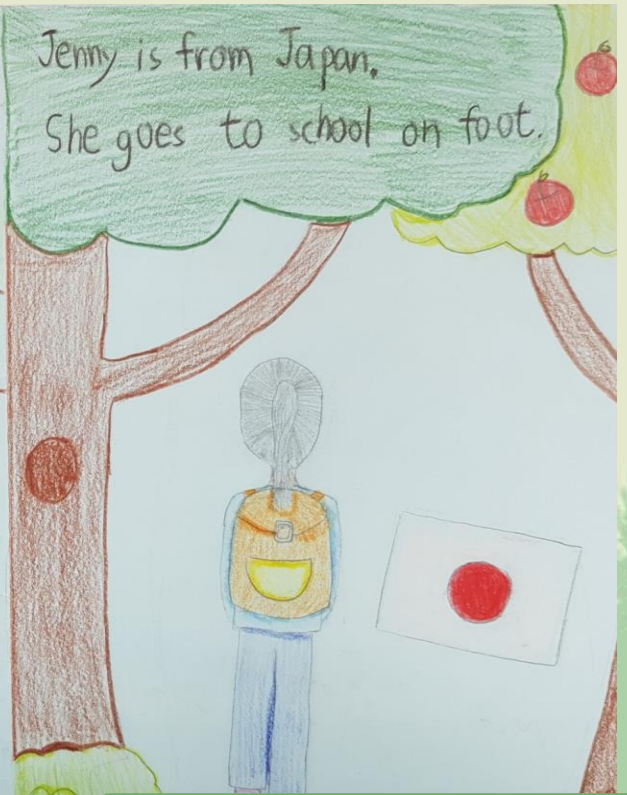 Jenny is from Japan.
She goes to school on foot.